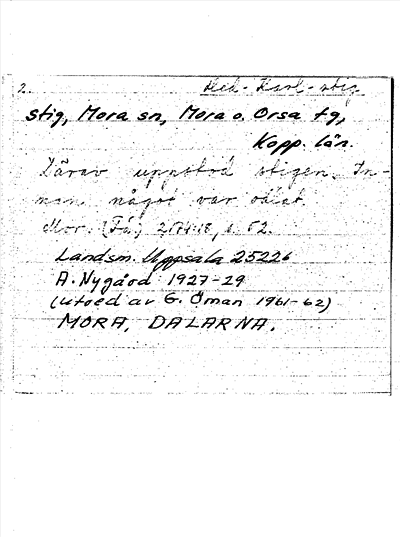 2.
Hed-Karl-stig
stig, Mora sn, Mora o. Orsa tg,
Kopp. län.
Därav uppstod stigen. In-
nan något var odlat.
Mor. (Få)
Landsm. Uppsala 25226
A. Nygård 1927-29
(utoed av G. Öman 1961-62)
MORA, DALARNA.